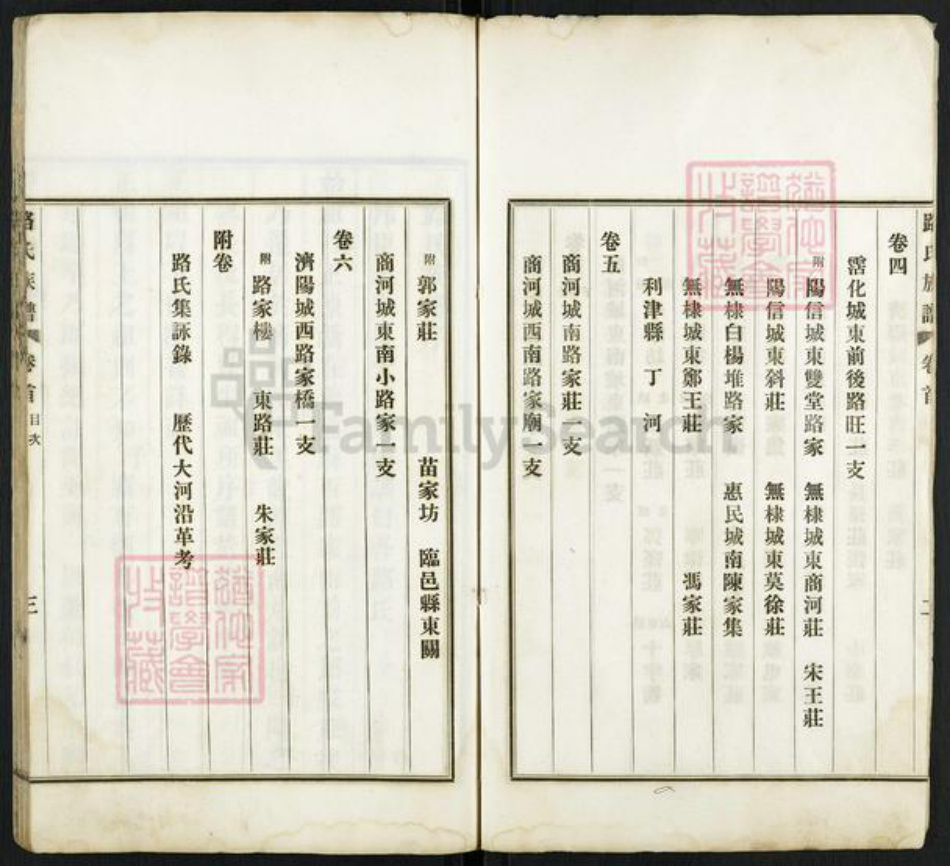 路氏族譜 卷首 二
卷四
霑化城東前後路旺一支
附 陽信城東雙堂路家 無棣城東商河莊 宋王莊
陽信城東斜莊 無棣城東莫徐莊
無棣白楊堆路家 惠民城南陳家集
無棣城東鄭王莊 馮家莊
利津縣丁河
卷五
商河城南路家莊一支
商河城西南路家廟一支
路氏族譜 卷首 目次 三
附 郭家莊 苗家坊 臨邑縣東關
商河城東南小路家一支
卷六
濟陽城西路家橋一支
附 路家樓 東路莊 朱家莊
附卷
路氏集詠錄 歷代大河沿革考
FamilySearch